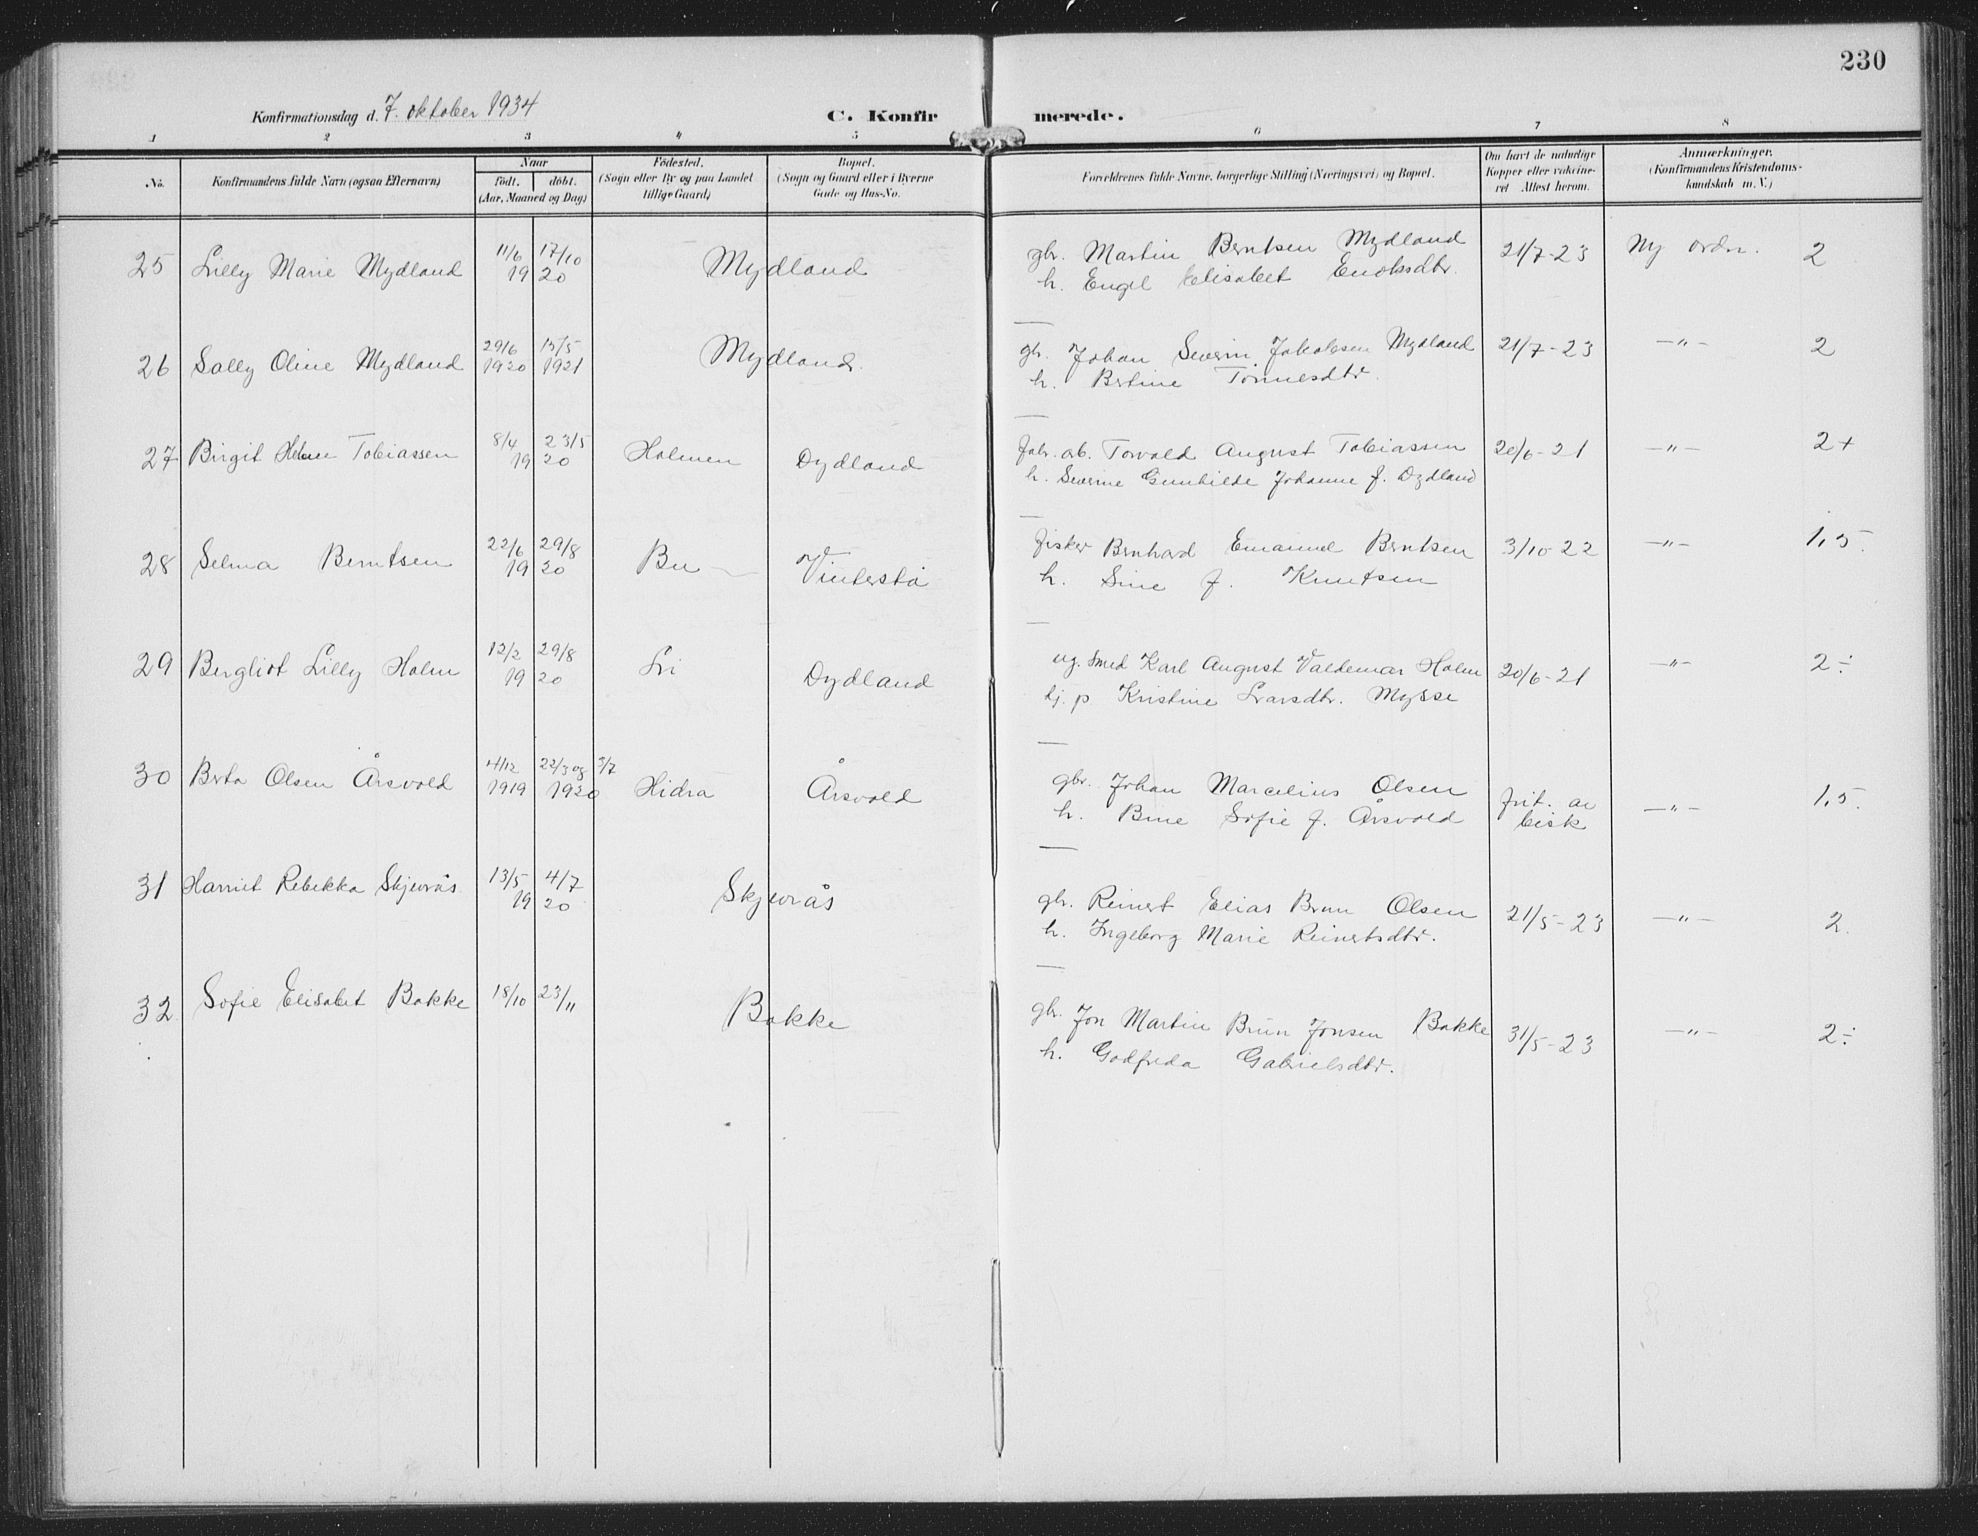 230
Konfirmationsdag d. 7. oktober 1934
C. Konfirmerede.
1 2 3 4 5 6 7 8
No.
Konfirmandens fulde Navn (ogsaa Efternavn)
Naar
født. døbt.
(Aar, Maaned og Dag)
Fødested.
(Sogn eller By og paa Landet
tillige Gaard)
Bopæl.
(Sogn og Gaard eller i Byerne
Gade og Hus-No.
Forældrenes fulde Navne, borgerlige Stilling (Næringsvei) og Bopæl.
Om havt de naturlige
Kopper eller vakcine-
ret Attest herom.
Anmærkninger.
(Konfirmandens Kristendoms-
kundskab m. V.)
25 Lilly Marie Mydland 11/6 17/10 Mydland gbr. Martin Berntsen Mydland 21/7-23 Ny ordn. 2
19 20 h. Engel Elisabet Enoksdtr.
26 Sally Oline Mydland 29/6 15/5 Mydland. gbr. Johan Severin Jakobsen Mydland 21/7-23 —"— 2
1920 1921 h. Bertine Tønnesdtr.
27 Birgit Helene Tobiassen 8/4 23/5 Holmen Dydland fabr. arb. Torvald August Tobiassen 20/6-21 —"— 2+
19 20 h. Severine Gunhilde Johanne f. Dydland
28 Selma Berntsen 22/6 29/8 Bu — Vinterstø fisker Bernhard Emanuel Berntsen 3/10-22 —"— 1,5.
19 20 h. Sine f. Knutsen
29 Bergliot Lilly Holm 12/2 29/8 Li Dydland ug. smed Karl August Valdemar Holm 20/6-21 —"— 2÷
19 20 tj. p. Kristine Larsdtr. Mysse
30 Berta Olsen Årsvold 4/12 22/3 og 3/7 Hidra Årsvold gbr. Johan Marcelius Olsen frit. av —"— 1,5.
1919 1920 h. Bine Sofie f. Årsvold bisk
31 Harriet Rebekka Skjevrås. 13/5 4/7 Skjevrås gbr. Reinert Elias Brun Olsen 21/5-23 —"— 2.
19 20 h. Ingeborg Marie Reinertsdtr.
32 Sofie Elisabet Bakke 18/10 23/11 Bakke gbr. Jon Martin Brun Jonsen Bakke 31/5-23 —"— 2÷
h. Godfreda Gabrielsdtr.